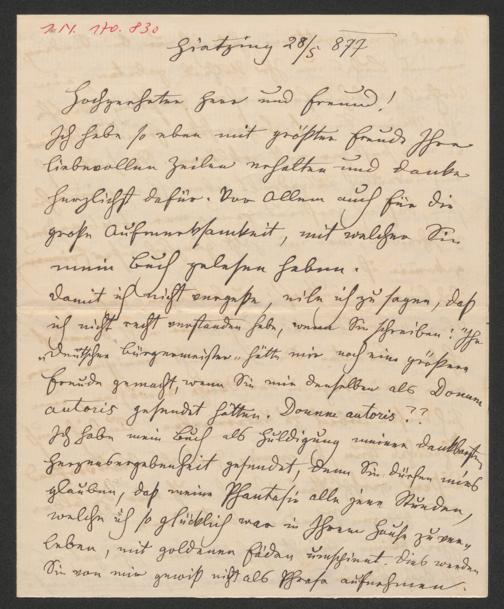 I.N. 170.830
Hietzing 28/5 877
Hochverehrter Herr und Freund!
Ich habe so eben mit größter Freude Ihre
liebevollen Zeilen erhalten und danke
herzlichst dafür. Vor Allem auch für die
große Aufmerksamkeit, mit welcher Sie
mein Buch gelesen haben.
Damit ich nicht vergeße, eile ich zu sagen, daß
ich nicht recht verstanden habe, wenn Sie schreiben: "Ihr
"Deutscher Bürgermeister" hätte mir noch eine größere
Freude gemacht, wenn Sie mir denselben als Donum
autoris gesendet hätten. Donum autoris??
Ich habe mein Buch als Huldigung meiner dankbarsten
Herzensergebenheit gesendet, denn Sie dürfen mirs
glauben, daß meine Phantasie alle jene Stunden,
welche ich so glücklich war in Ihrem Hause zu ver-
leben, mit goldenen Fäden umspinnt. Dies werden
Sie von mir gewiß nicht als Phrase aufnehmen.